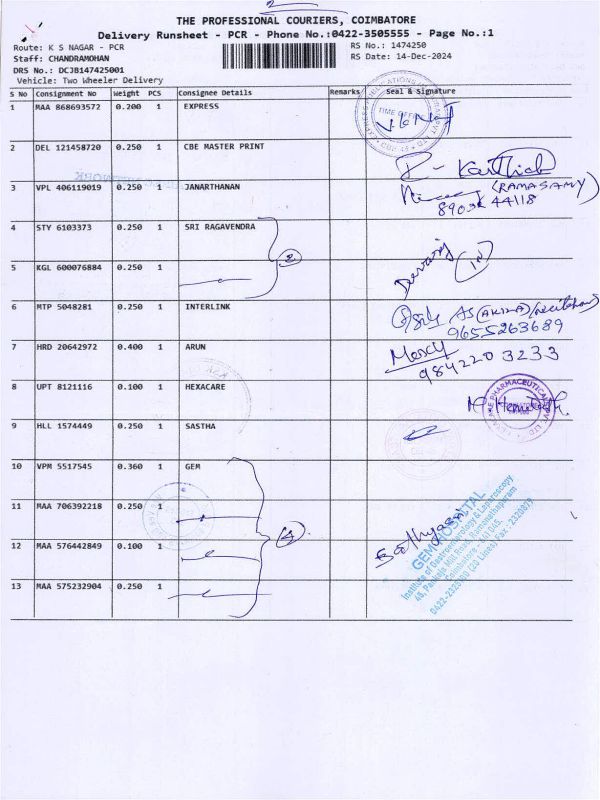 2
THE PROFESSIONAL COURIERS, COIMBATORE
Delivery Runsheet - PCR - Phone No.:0422-3505555 - Page No.:1
Route: K S NAGAR - PCR RS No.: 1474250
Staff: CHANDRAMOHAN RS Date: 14-Dec-2024
DRS No.: DCJB147425001
Vehicle: Two Wheeler Delivery
S No Consignment No Weight PCS Consignee Details Remarks Seal & Signature
1 MAA 868693572 0.200 1 EXPRESS
TIME OFFICE
2 DEL 121458720 0.250 1 CBE MASTER PRINT
R- Karthick
3 VPL 406119019 0.250 1 JANARTHANAN (RAMASAMY)
44118
4 STY 6103373 0.250 1 SRI RAGAVENDRA
2
5 KGL 600076884 0.250 1
6 MTP 5048281 0.250 1 INTERLINK
9655263689
7 HRD 20642972 0.400 1 ARUN Mercy
9842203233
8 UPT 8121116 0.100 1 HEXACARE
9 HLL 1574449 0.250 1 SASTHA
10 VPM 5517545 0.360 1 GEM
11 MAA 706392218 0.250 1
4
12 MAA 576442849 0.100 1
13 MAA 575232904 0.250 1
Sathyasri
GEM HOSPITAL
Institute of Gastroenterology & Laparoscopy
45, Pankaja Mill Road, Ramanathapuram
Coimbatore - 641 045.
0422-2325100 (20 Lines) Fax - 2320879